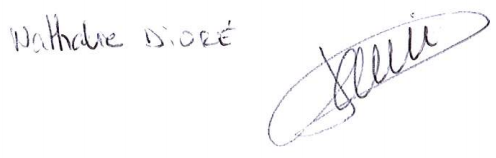 Nathalie DIORÉ